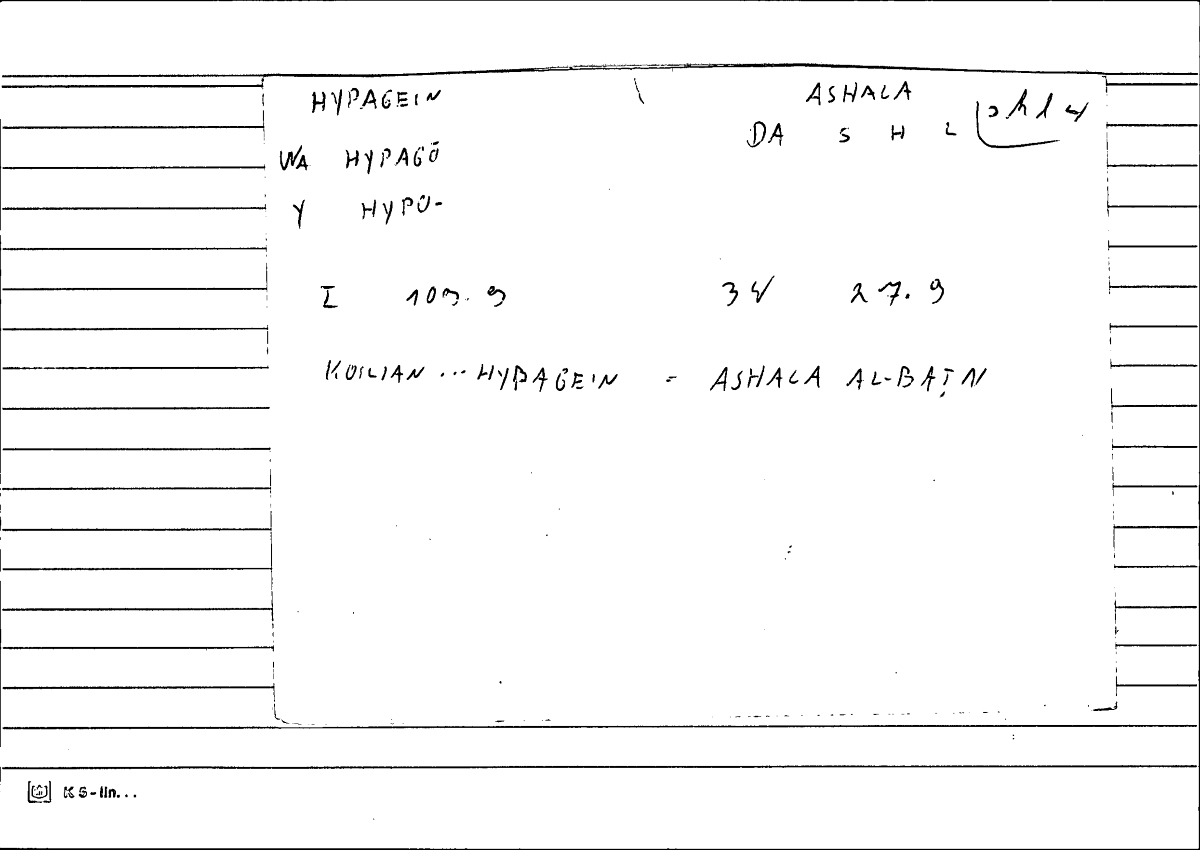 HYPAGEIN ASHALA
WA HYPAGŌ DA S H L
Y HYPO-
I 109. 9 34 27. 9
KOILIAN ... HYPAGEIN = ASHALA AL-BAṬN
K5-lin...